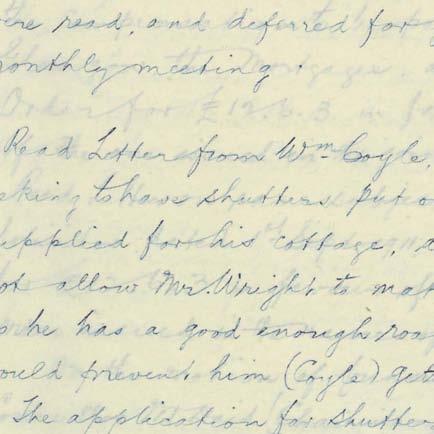 ere read, and deferred for
monthly meeting.
Read Letter from Wm Coyle,
eking to have shutters put o
upplied for his cottage, a
ot allow Mr. Wright to ma
s he has a good enough roa
ould prevent him (Coyle) get
The application for shutters